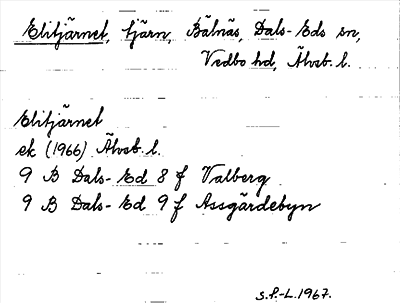 Elitjärnet, tjärn, Bälnäs, Dals-Eds sn,
Vedbo hd, Älvsb. l.
Elitjärnet
ek (1966) Älvsb. l.
9 B Dals-Ed 8 f Valberg
9 B Dals-Ed 9 f Assgärdebyn
S.F.-L. 1967.